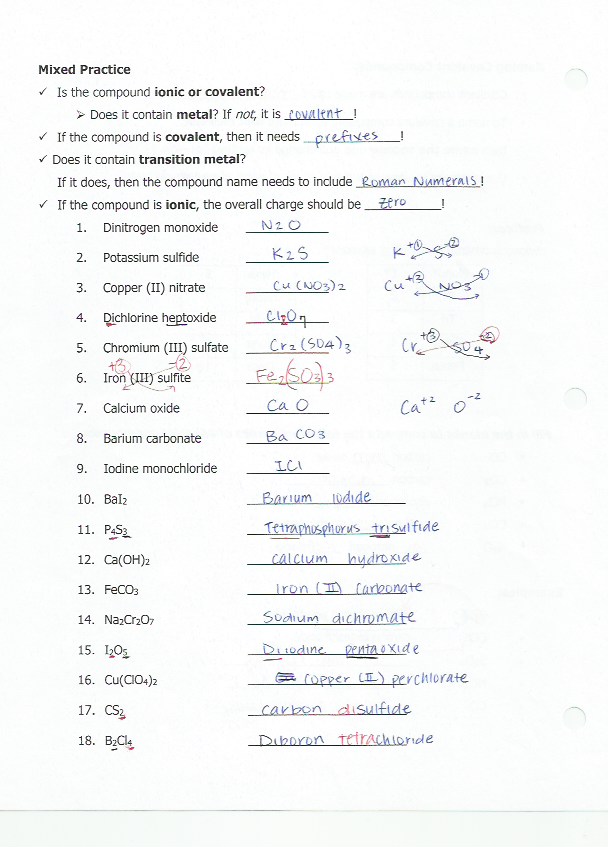 Mixed Practice
✓ Is the compound ionic or covalent?
➢ Does it contain metal? If not, it is covalent!
✓ If the compound is covalent, then it needs prefixes!
✓ Does it contain transition metal?
If it does, then the compound name needs to include Roman Numerals!
✓ If the compound is ionic, the overall charge should be zero!
1. Dinitrogen monoxide N2O
2. Potassium sulfide K2S K +1 S -2
3. Copper (II) nitrate Cu(NO3)2 Cu +2 NO3 -1
4. Dichlorine heptoxide Cl2O7
5. Chromium (III) sulfate Cr2(SO4)3 Cr +3 SO4 -2
+3 -2
6. Iron (III) sulfite Fe2(SO3)3
7. Calcium oxide CaO Ca+2 O-2
8. Barium carbonate BaCO3
9. Iodine monochloride ICl
10. BaI2 Barium iodide
11. P4S3 Tetraphosphurus trisulfide
12. Ca(OH)2 calcium hydroxide
13. FeCO3 Iron (II) carbonate
14. Na2Cr2O7 Sodium dichromate
15. I2O5 Diiodine pentaoxide
16. Cu(ClO4)2 copper (II) perchlorate
17. CS2 carbon disulfide
18. B2Cl4 Diboron tetrachloride